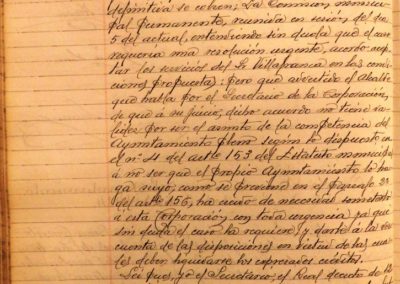 definitiva se cobren; La Comisión munici-
pal permanente, reunida en sesión del dia
5 del actual, entendiendo sin duda que el caso
requería una resolución urgente, acordó acep-
tar los servicios del Sr Villafranca en las condi-
ciones propuestas: pero que advertido el Alcalde
que habla por el Secretario de la Corporación,
de que á su juicio, dicho acuerdo no tiene va-
lidez por ser el asunto de la competencia del
Ayuntamiento pleno segun lo dispuesto en
el nº 4 del artlº 153 del Estatuto municipal
á no ser que el propio Ayuntamiento lo ha-
ga suyo, como se previene en el párrafo 3º
del artlº 156, ha creido de necesidad someterlo
á esta Corporación con toda urgencia ya que
sin duda el caso la requiere, y darle á la vez
cuenta de las disposiciones en virtud de las cua-
les deben liquidarse los expresados créditos.
Leí pues, yo el Secretario, el Real decreto de 12